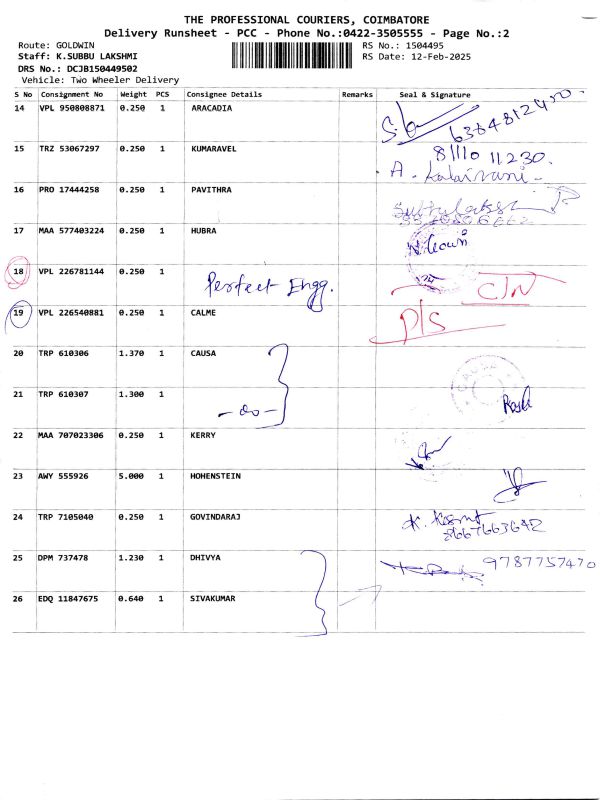 THE PROFESSIONAL COURIERS, COIMBATORE
Delivery Runsheet - PCC - Phone No.:0422-3505555 - Page No.:2
Route: GOLDWIN RS No.: 1504495
Staff: K.SUBBU LAKSHMI RS Date: 12-Feb-2025
DRS No.: DCJB150449502
Vehicle: Two Wheeler Delivery
S No Consignment No Weight PCS Consignee Details Remarks Seal & Signature
14 VPL 950808871 0.250 1 ARACADIA
15 TRZ 53067297 0.250 1 KUMARAVEL 81110 11230.
A. Kalaivani-
16 PRO 17444258 0.250 1 PAVITHRA
17 MAA 577403224 0.250 1 HUBRA
18 VPL 226781144 0.250 1 Perfect Engg. C/N
19 VPL 226540881 0.250 1 CALME P/S
20 TRP 610306 1.370 1 CAUSA
21 TRP 610307 1.300 1 -do-
22 MAA 707023306 0.250 1 KERRY
23 AWY 555926 5.000 1 HOHENSTEIN
24 TRP 7105040 0.250 1 GOVINDARAJ
8667663642
25 DPM 737478 1.230 1 DHIVYA 9787757470
26 EDQ 11847675 0.640 1 SIVAKUMAR